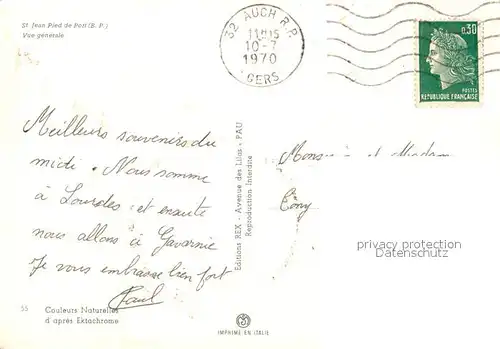 St Jean Pied de Port (B. P.)
Vue générale
32 AUCH R.P.
11H15
10-7
1970
GERS
0,30
POSTES
REPUBLIQUE FRANÇAISE
Meilleurs souvenirs du
midi. Nous somme
à Lourdes et ensuite
nous allons à Gavarnie
Je vous embrasse bien fort
Paul
Editions REX - Avenue des Lilas - PAU
Reproduction Interdite
Monsieur et Madame
privacy protection
55
Couleurs Naturelles
d'après Ektachrome
IMPRIMÉ EN ITALIE